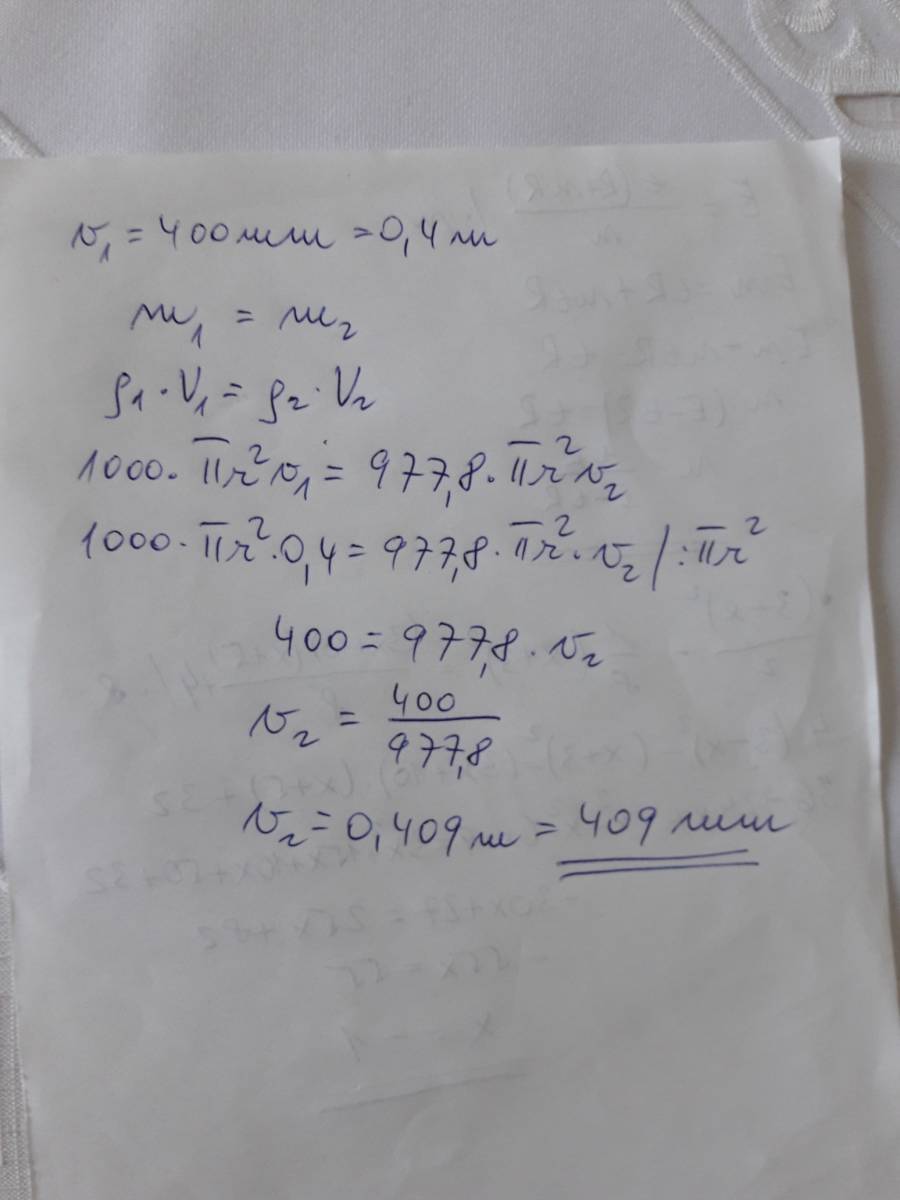 v₁ = 400 mm = 0,4 m
m₁ = m₂
ρ₁ · V₁ = ρ₂ · V₂
1000 · πr² v₁ = 977,8 · πr² v₂
1000 · πr² · 0,4 = 977,8 · πr² · v₂ / : πr²
400 = 977,8 · v₂
v₂ = 400/977,8
v₂ = 0,409 m = 409 mm